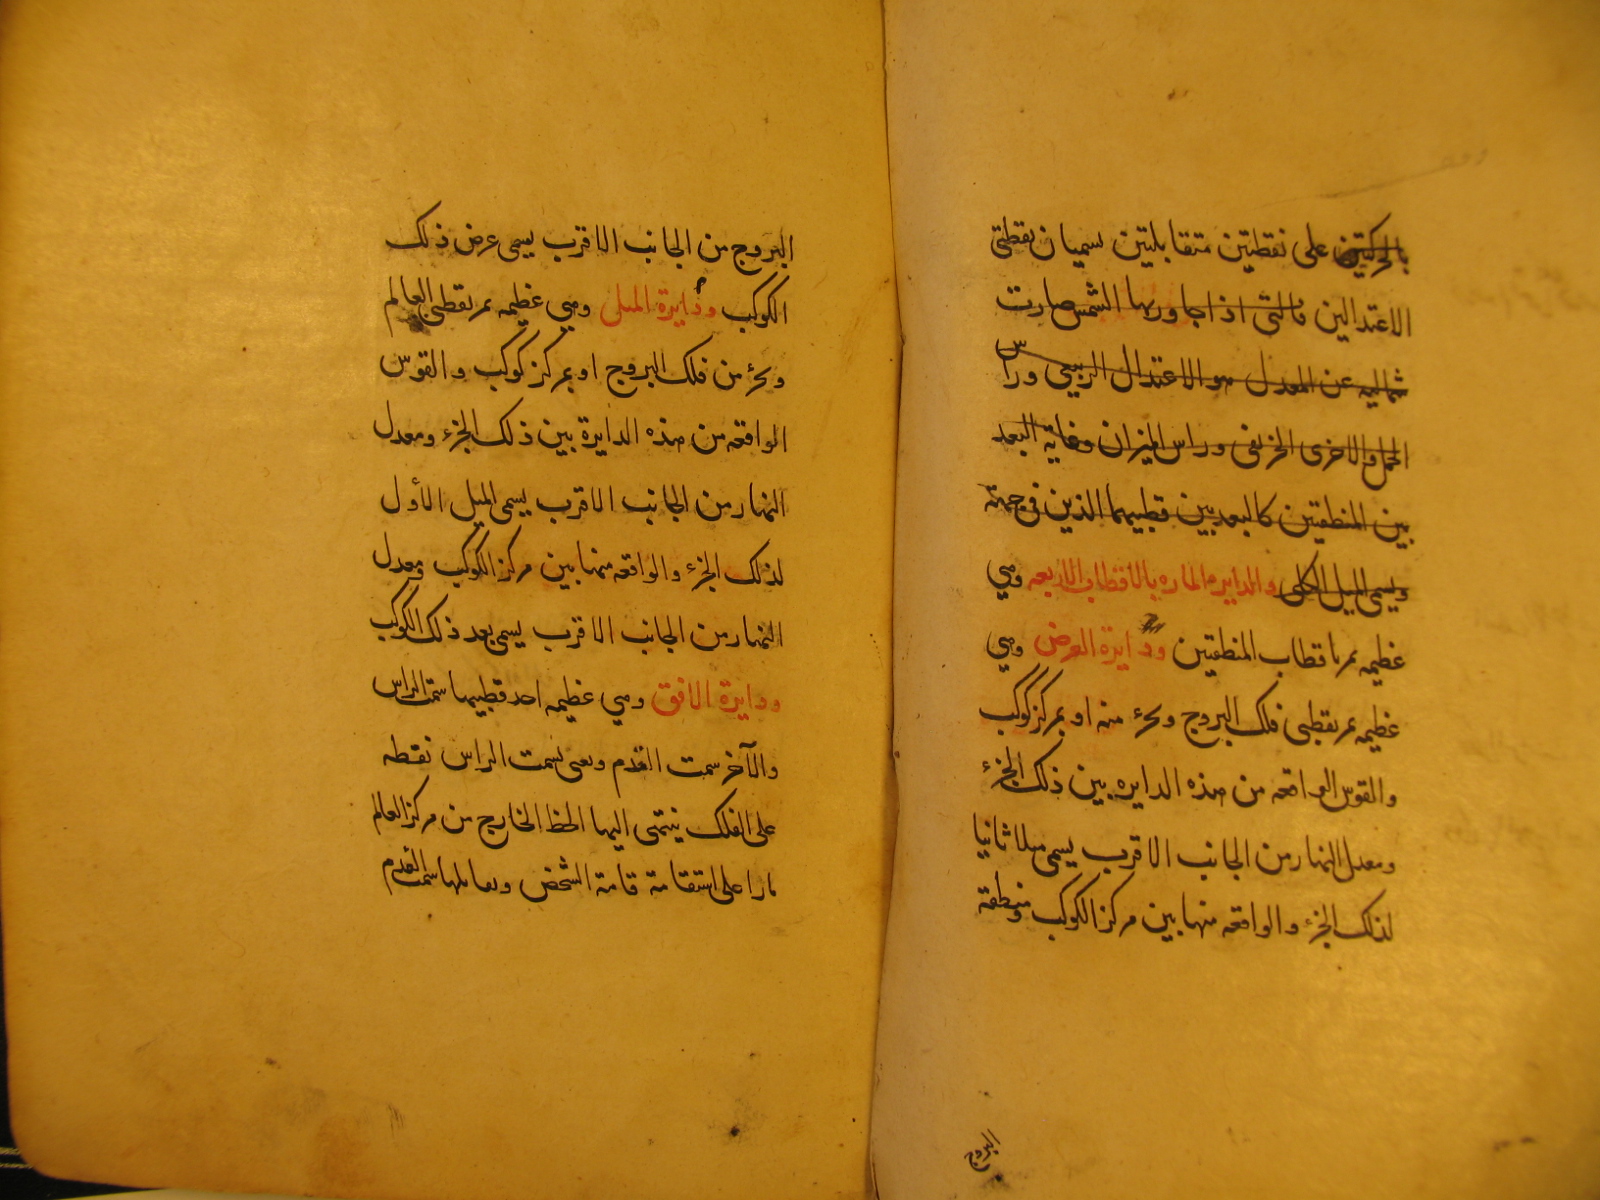 بالحركتين على نقطتين متقابلتين يسميان نقطتى
الاعتدالين فالتى اذا جاورها الشمس صارت
شماليه عن المعدل هو الاعتدال الربيعى وراس
الحمل والاخرى الخريفى وراس الميزان وغاية البعد
بين المنطقتين كالبعد بين قطبيهما الذين فى جهة
ويسمى الميل الكلى والدايره الماره بالاقطاب الاربعه وهي
عظيمه تمر باقطاب المنطقتين ودايرة العرض وهي
عظيمه تمر بقطبى فلك البروج وبجزء منه او بمركز كوكب
والقوس الواقعه من هذه الدايره بين ذلك الجزء
ومعدل النهار من الجانب الاقرب يسمى ميلا ثانيا
لذلك الجزء والواقعه منها بين مركز الكوكب ومنطقة
البروج
البروج من الجانب الاقرب يسمى عرض ذلك
الكوكب ودايرة الميل وهي عظيمه تمر بقطبى العالم
وبجزء من فلك البروج او بمركز كوكب والقوس
الواقعه من هذه الدايرة بين ذلك الجزء ومعدل
النهار من الجانب الاقرب يسمى الميل الأول
لذلك الجزء والواقعه منها بين مركز الكوكب ومعدل
النهار من الجانب الاقرب يسمى بعد ذلك الكوكب
ودايرة الافق وهي عظيمه احد قطبيها سمت الراس
والآخر سمت القدم ونعنى بسمت الراس نقطه
على الفلك ينتهى اليها الخط الخارج من مركز العالم
مارا على استقامة قامة الشخص ويقابلها سمت القدم